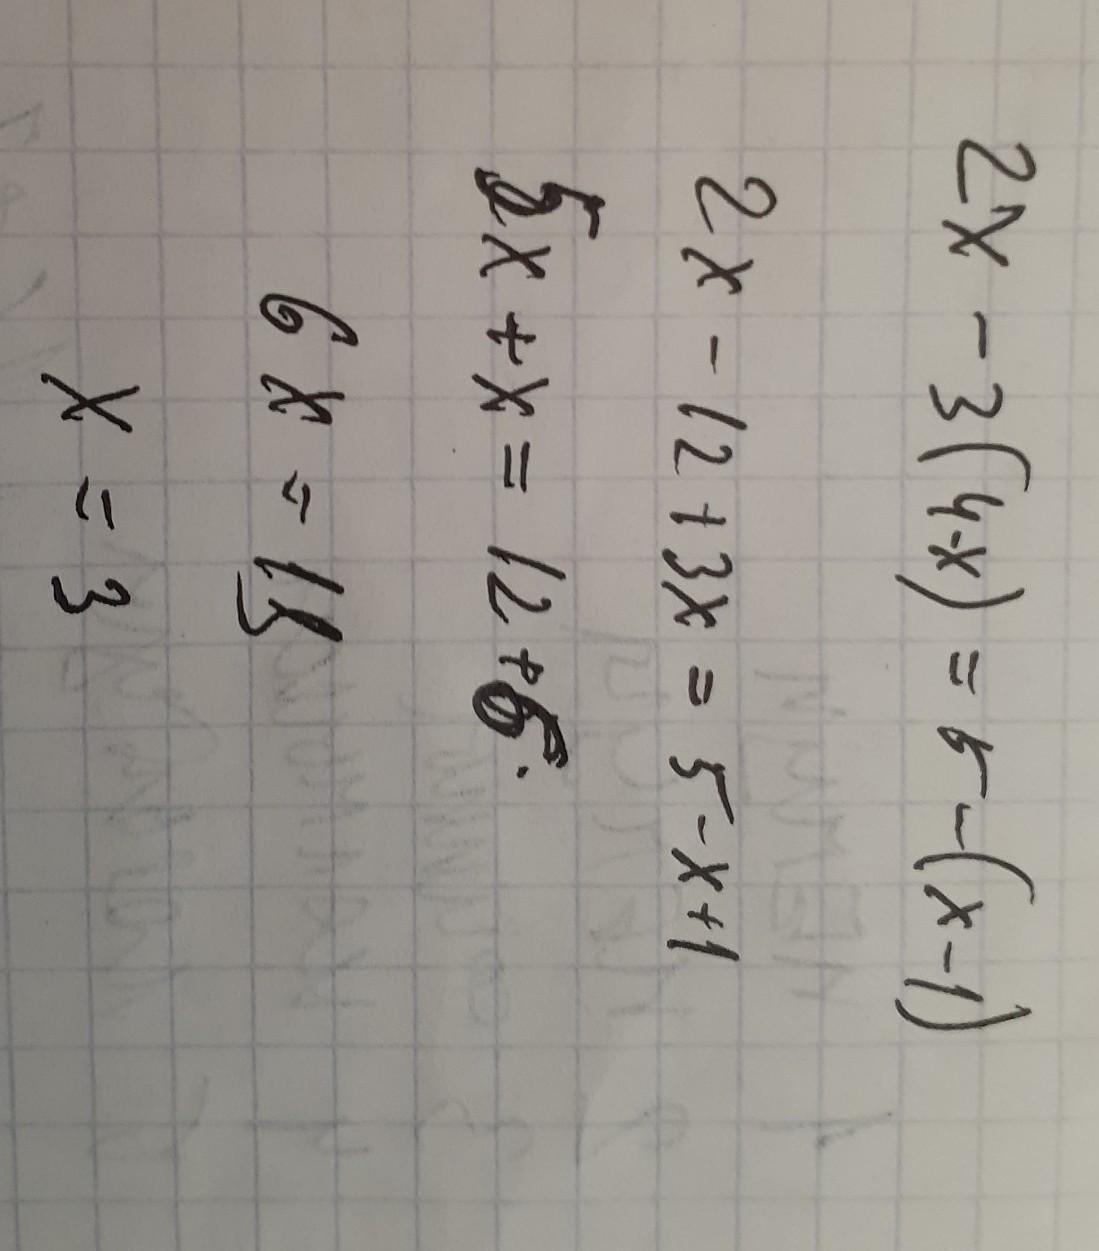 2x - 3(4-x) = 5 - (x-1)
2x - 12 + 3x = 5 - x + 1
5x + x = 12 + 6.
6x = 15
x = 3